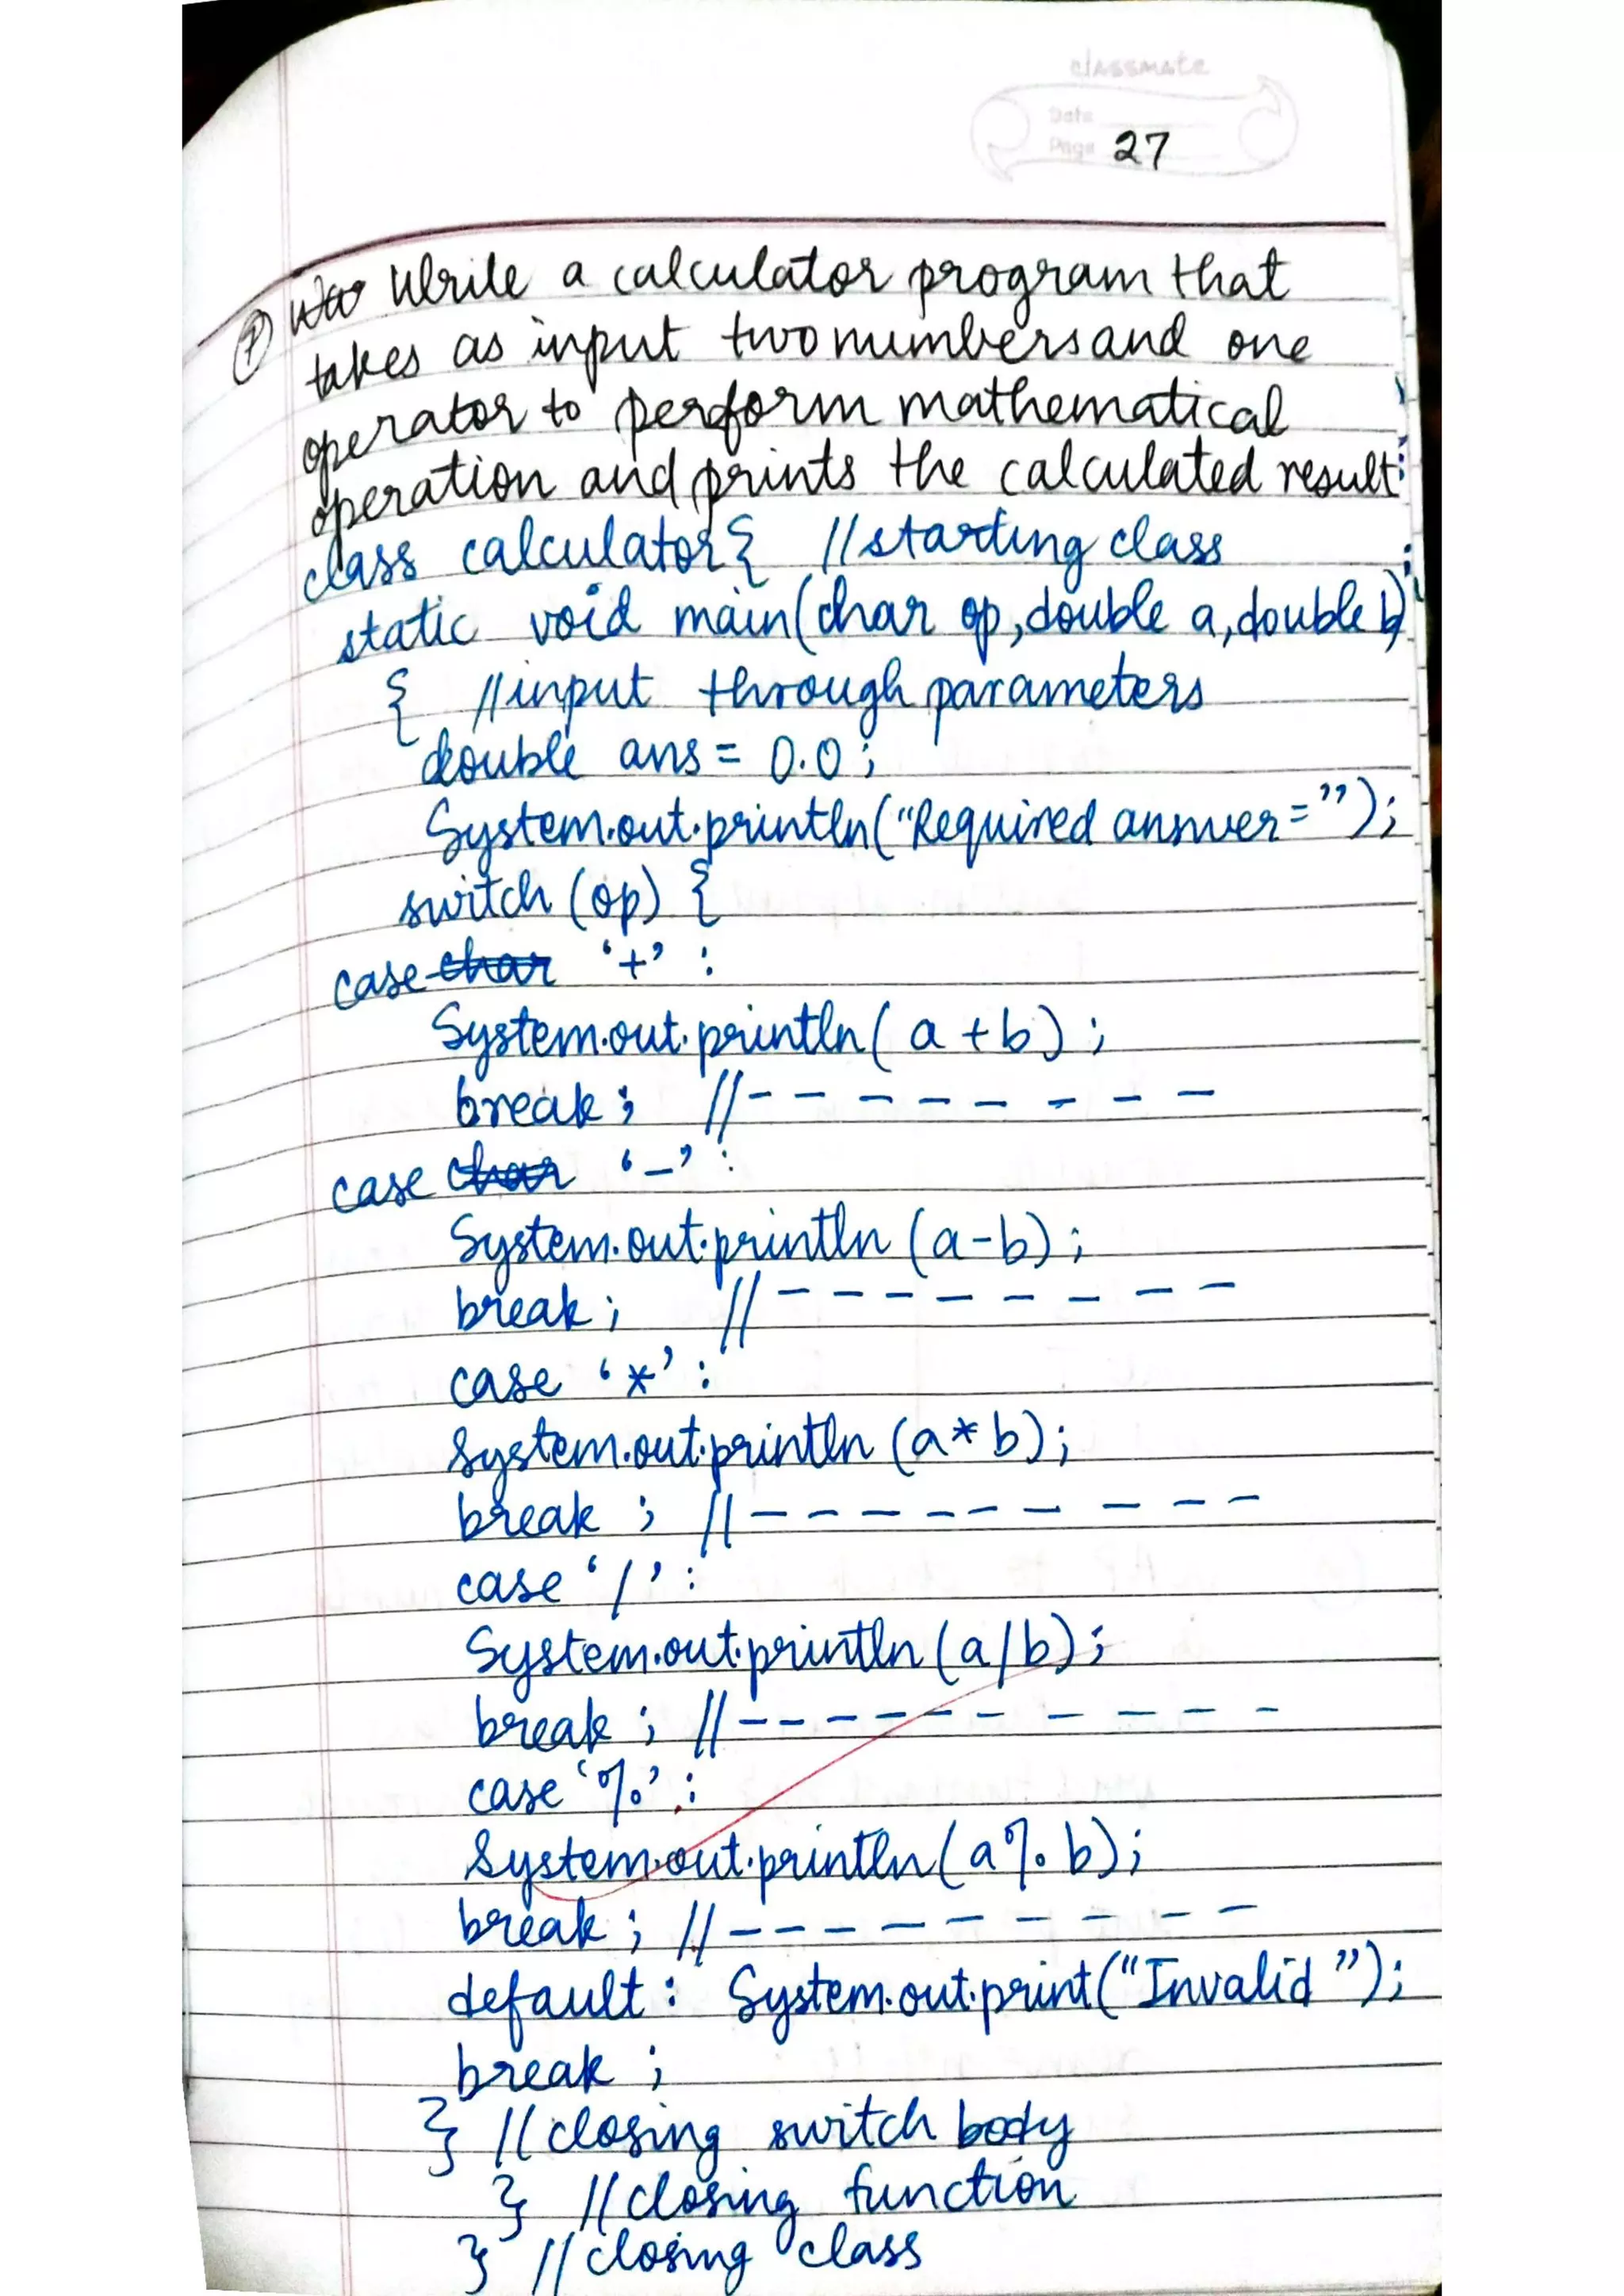 classmate
Date
Page 27
⑦ Write a calculator program that
takes as input two numbers and one
operator to perform mathematical
operation and prints the calculated result:
class calculator{ //starting class
static void main(char op,double a,double b)
{ //input through parameters
double ans = 0.0;
System.out.println("Required answer=");
switch (op) {
case char '+' :
System.out.println( a + b) ;
break ; //- - - - - - - - -
case char '-' :
System.out.println (a-b) ;
break ; //- - - - - - - - -
case '*' :
System.out.println (a * b);
break ; //- - - - - - - - - -
case '/' :
System.out.println (a/b);
break ; //- - - - - - - - - -
case '%' :
System.out.println( a % b);
break ; //- - - - - - - - - -
default : System.out.print("Invalid ");
break ;
} //closing switch body
} //closing function
} //closing class